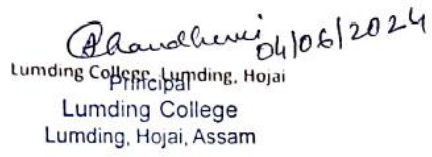 04/06/2024
Lumding College, Lumding, Hojai
Principal
Lumding College
Lumding, Hojai, Assam